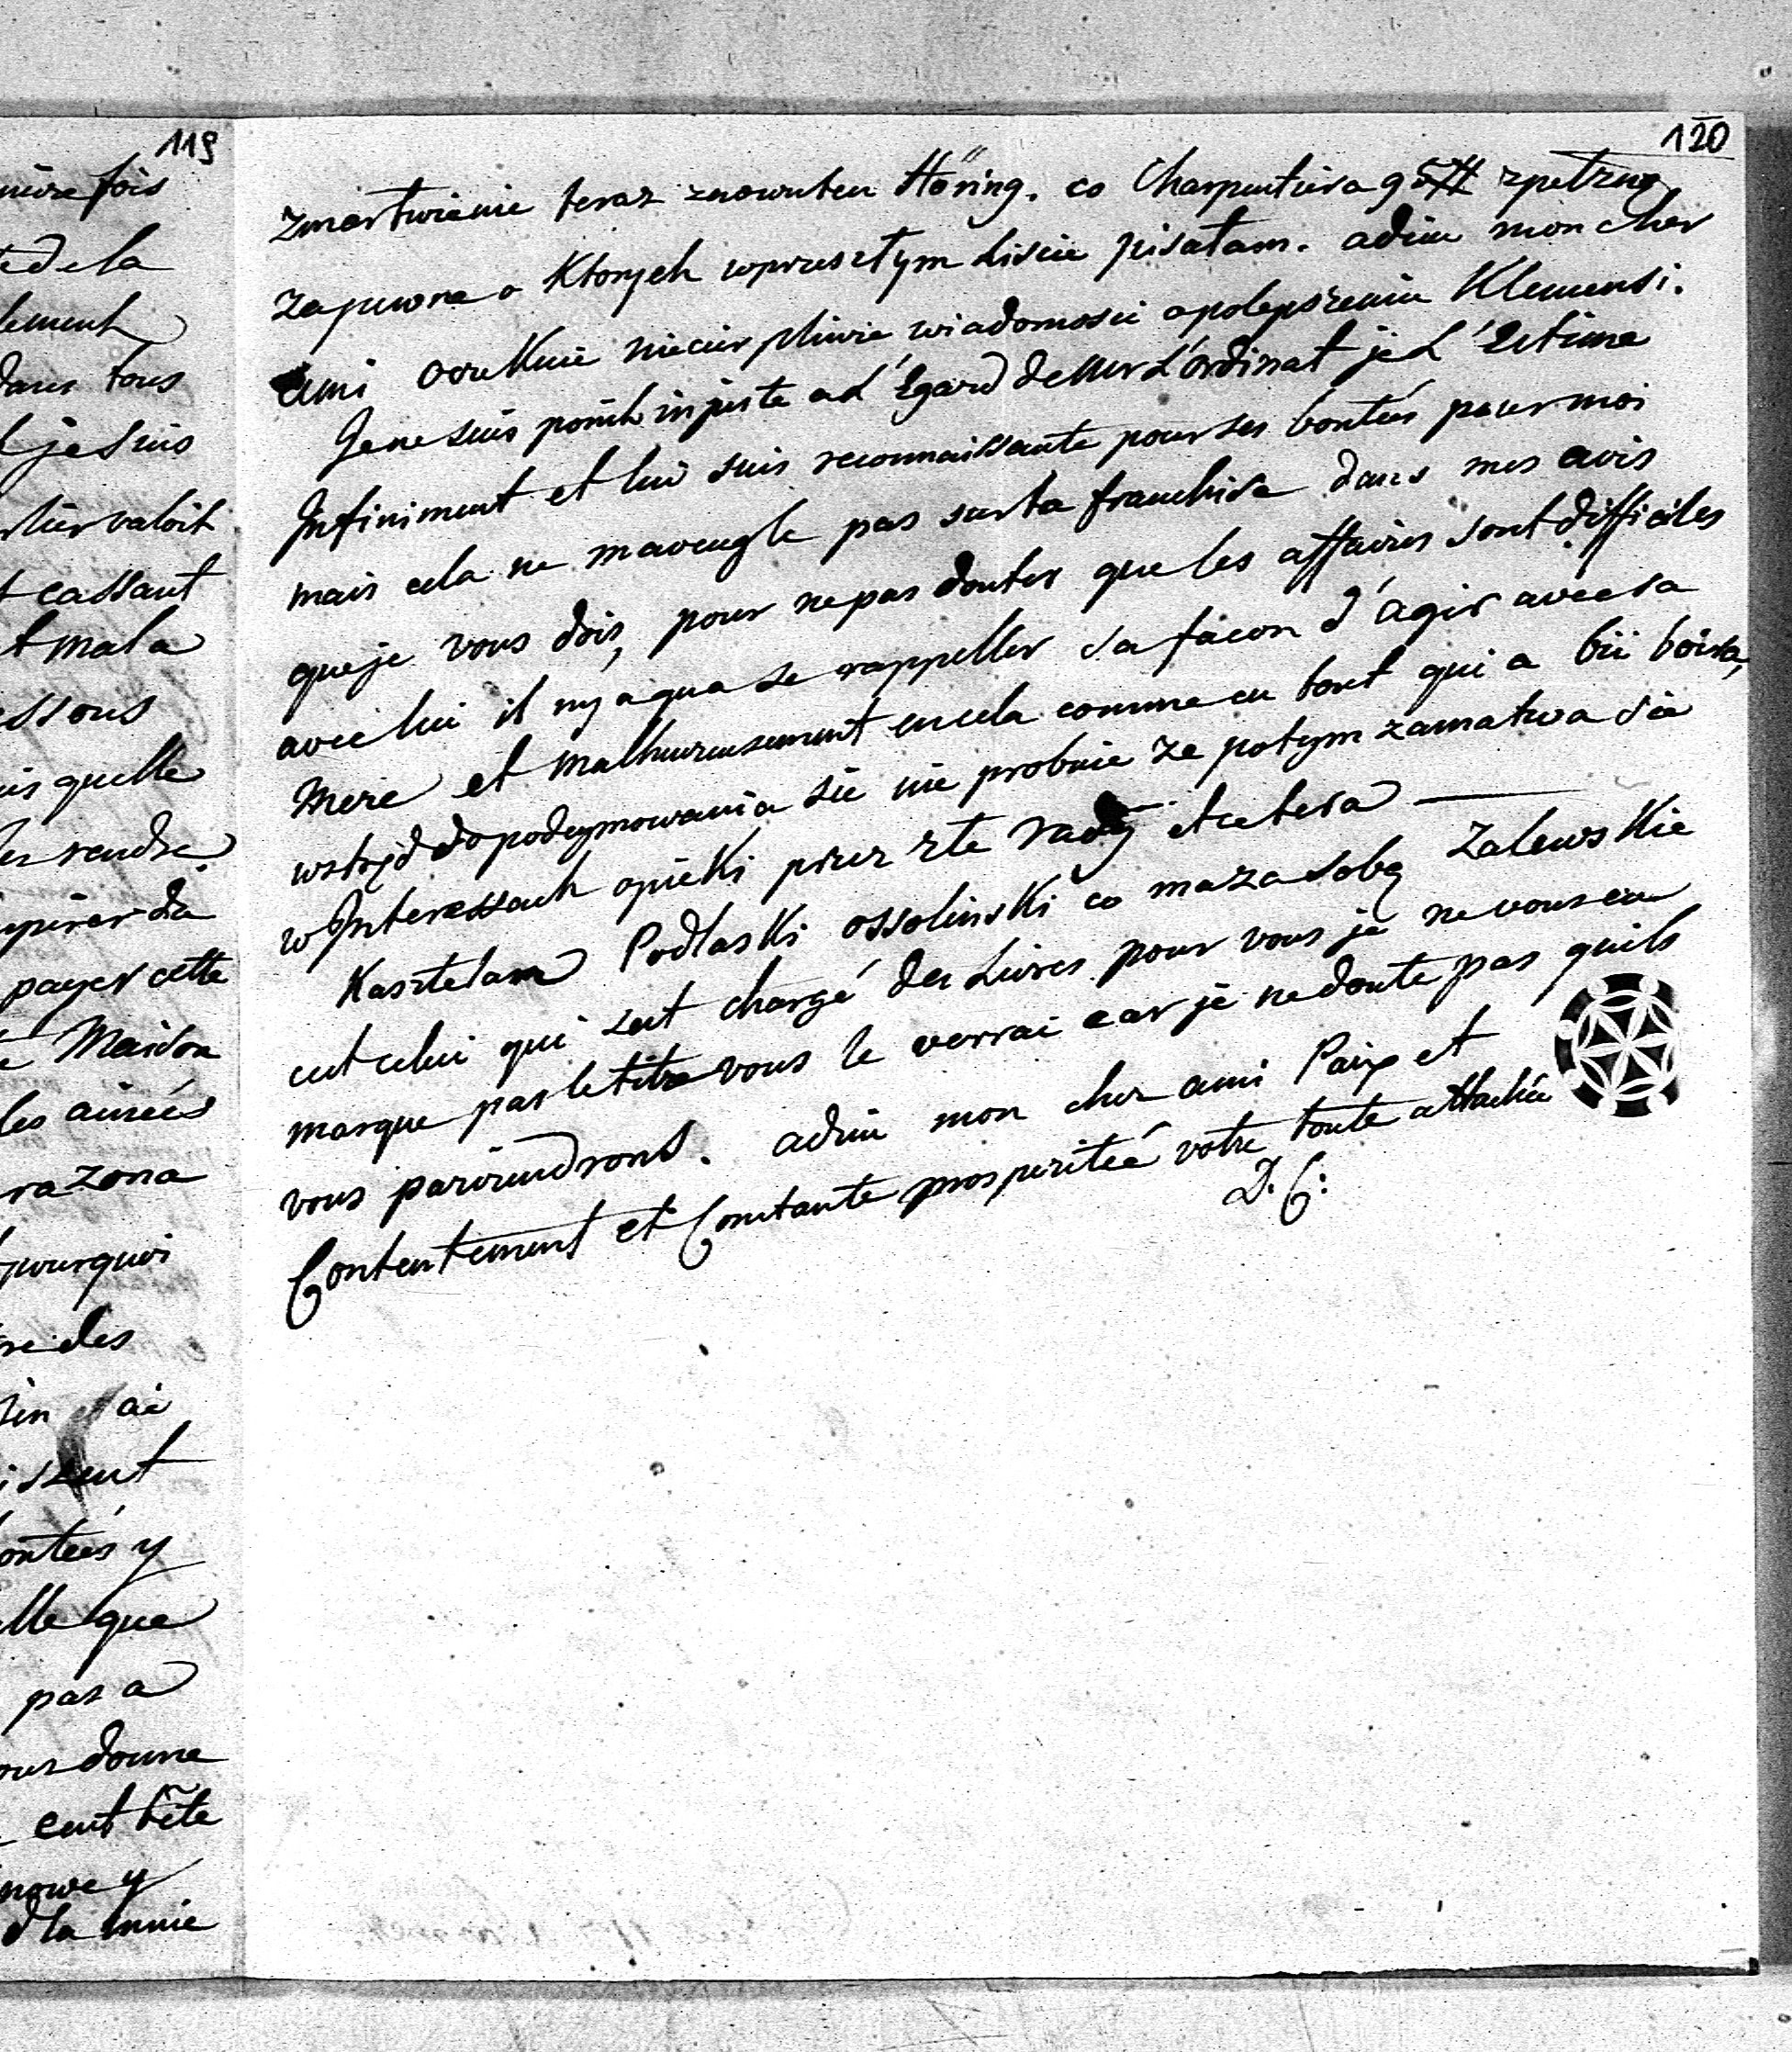 119
120
zmartwienie teraz znowuten Höring. co Charpentiera zpetzną
zapewne o Ktorych wprzesztym Liscie pisatam. adieu mon cher
ami oczeKuie niecierpliwie wiadomosci opolepszeniu Klemensi.
Je ne suis point injuste a L'Egard de Mr L'ordinat je L'Estime
Infiniment et lui suis reconnaissante pour ses bontées pour moi
mais cela ne maveugle pas sur la franchise dans mes avis
que je vous dois, pour ne pas douter que les affaires sont difficiles
avec lui il ny a qua se rappeller sa façon d'agir avec sa
Mere et malheureusement en cela comme en tout qui a bü boira,
wstręd do podeymowania się nie probuie ze potym zamatwa sia
w Interessach opieKi przez zte rady etcetera
Kasztelam PodlasKi OssolinsKi co ma za sobą ZalewsKie
est celui qui sest chargé des Livres pour vous je ne vous en
marque pas le titre vous le verrai car je ne doute pas quils
vous parviendront. adieu mon cher ami Paix et
Contentement et Constante prosperiteé votre toute attachée
D. C:
nière fois
te de la
lement
dans tous
je suis
valoit
cassant
t mala
essous
is quelle
les rendre
payer cette
Maison
les ainées
pourquoi
re des
issent
ontées y
lle que
pas a
ous donne
cent bête
nowe y
dla mnie